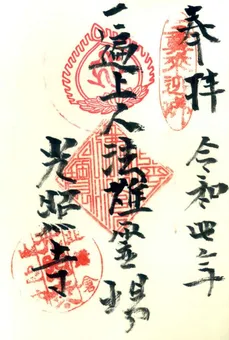 奉拝
令和四年
一遍上人法雄霊場
光照寺